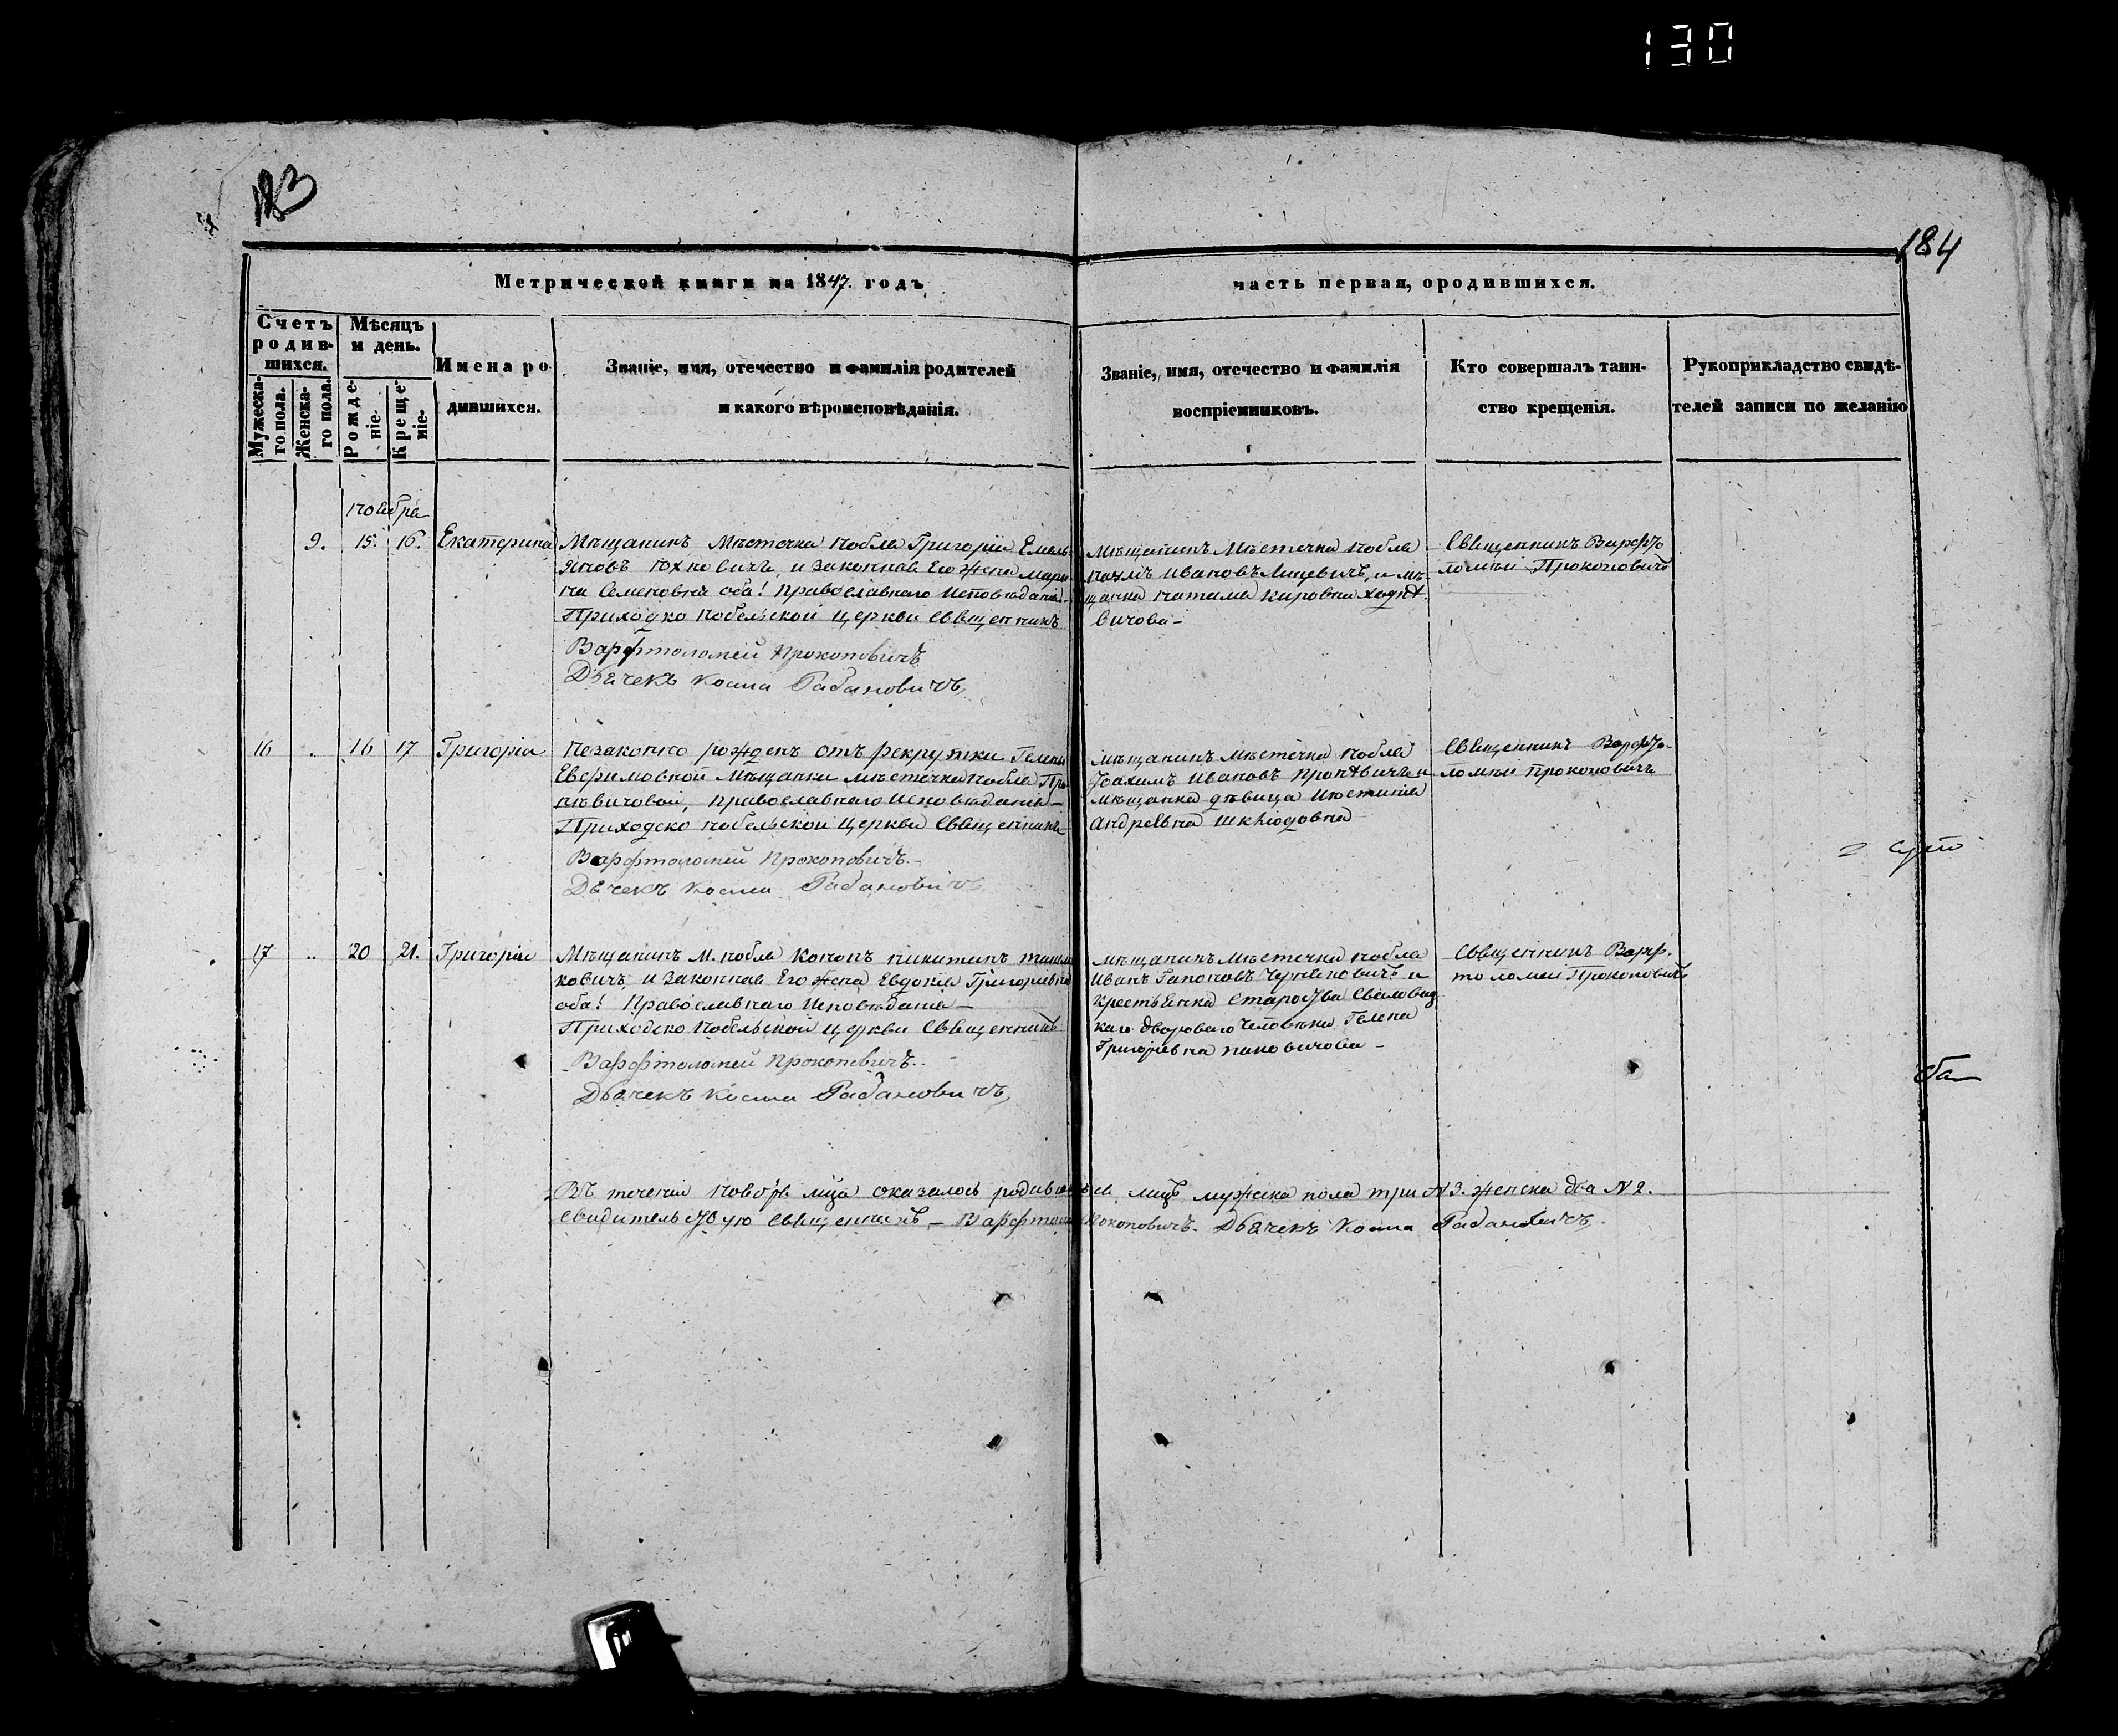 130
183
184
Метрической книги на 1847. годъ
часть первая, ородившихся.
Счетъ родив-
шихся.
Мужеска-
го пола.
Женска-
го пола.
Мѣсяцъ
и день.
Рожде-
ніе.
Креще-
ніе.
Имена ро-
дившихся.
Званіе, имя, отечество и фамилія родителей
и какого вѣроисповѣданія.
Званіе, имя, отечество и фамилія
воспріемниковъ.
Кто совершалъ таин-
ство крещенія.
Рукоприкладство свидѣ-
телей записи по желанію
ноября
9. 15. 16. Екатерина
Мѣщанинъ Мѣстечка Нобля Григорій Емель-
яновъ Юхновичъ, и законная Его жена Мари-
на Семеновна оба! Православнаго Исповѣданія
Приходско Нобельской Церкви Священникъ
Варфтоломей Прокоповичъ
Дьячекъ Косма Рабановичъ
Мѣщанинъ Мѣстечка Нобля
Наумъ Ивановъ Лицевичъ, и мѣ-
щанка
вичова
Священникъ Варфто
ломѣй Прокоповичъ
16 .. 16 17 Григорій
Незаконно рожденъ отъ рекрутки Гелены
Евфимовной Мѣщанки мѣстечка Нобля Про-
нѣвичовой, Православнаго Исповѣданія
Приходско Нобельской Церкви Священникъ
Варфтоломей Прокоповичъ.
Дьячекъ Косма Рабановичъ
мѣщанинъ мѣстечка Нобля
Іоахимъ Ивановъ Пронѣвичъ и
мѣщанка дѣвица Иустинія
Андреевна
Священникъ Варфто-
ломѣй Прокоповичъ
17 .. 20 21. Григорій
Мѣщанинъ М. Нобля Кононъ Никитинъ
ковичъ, и законная Его жена Евдокія Григорієвна
оба! Православнаго Исповѣданія
Приходско Нобельской Церкви Священникъ
Варфтоломей Прокоповичъ.
Дьячекъ Косма Рабановичъ
мѣщанинъ Мѣстечка Нобля
Иванъ Гапоновъ и
крестьянка Староства
каго двороваго человѣка Гелена
Григорієвна
Священникъ Варф-
толомей Прокоповичъ
Въ теченіи Ноября мѣца оказалось родившихся лицъ мужеска пола три N 3. женска два N 2.
Свидительствую Священникъ Варфтоломей Прокоповичъ. Дьячекъ Косма Рабановичъ